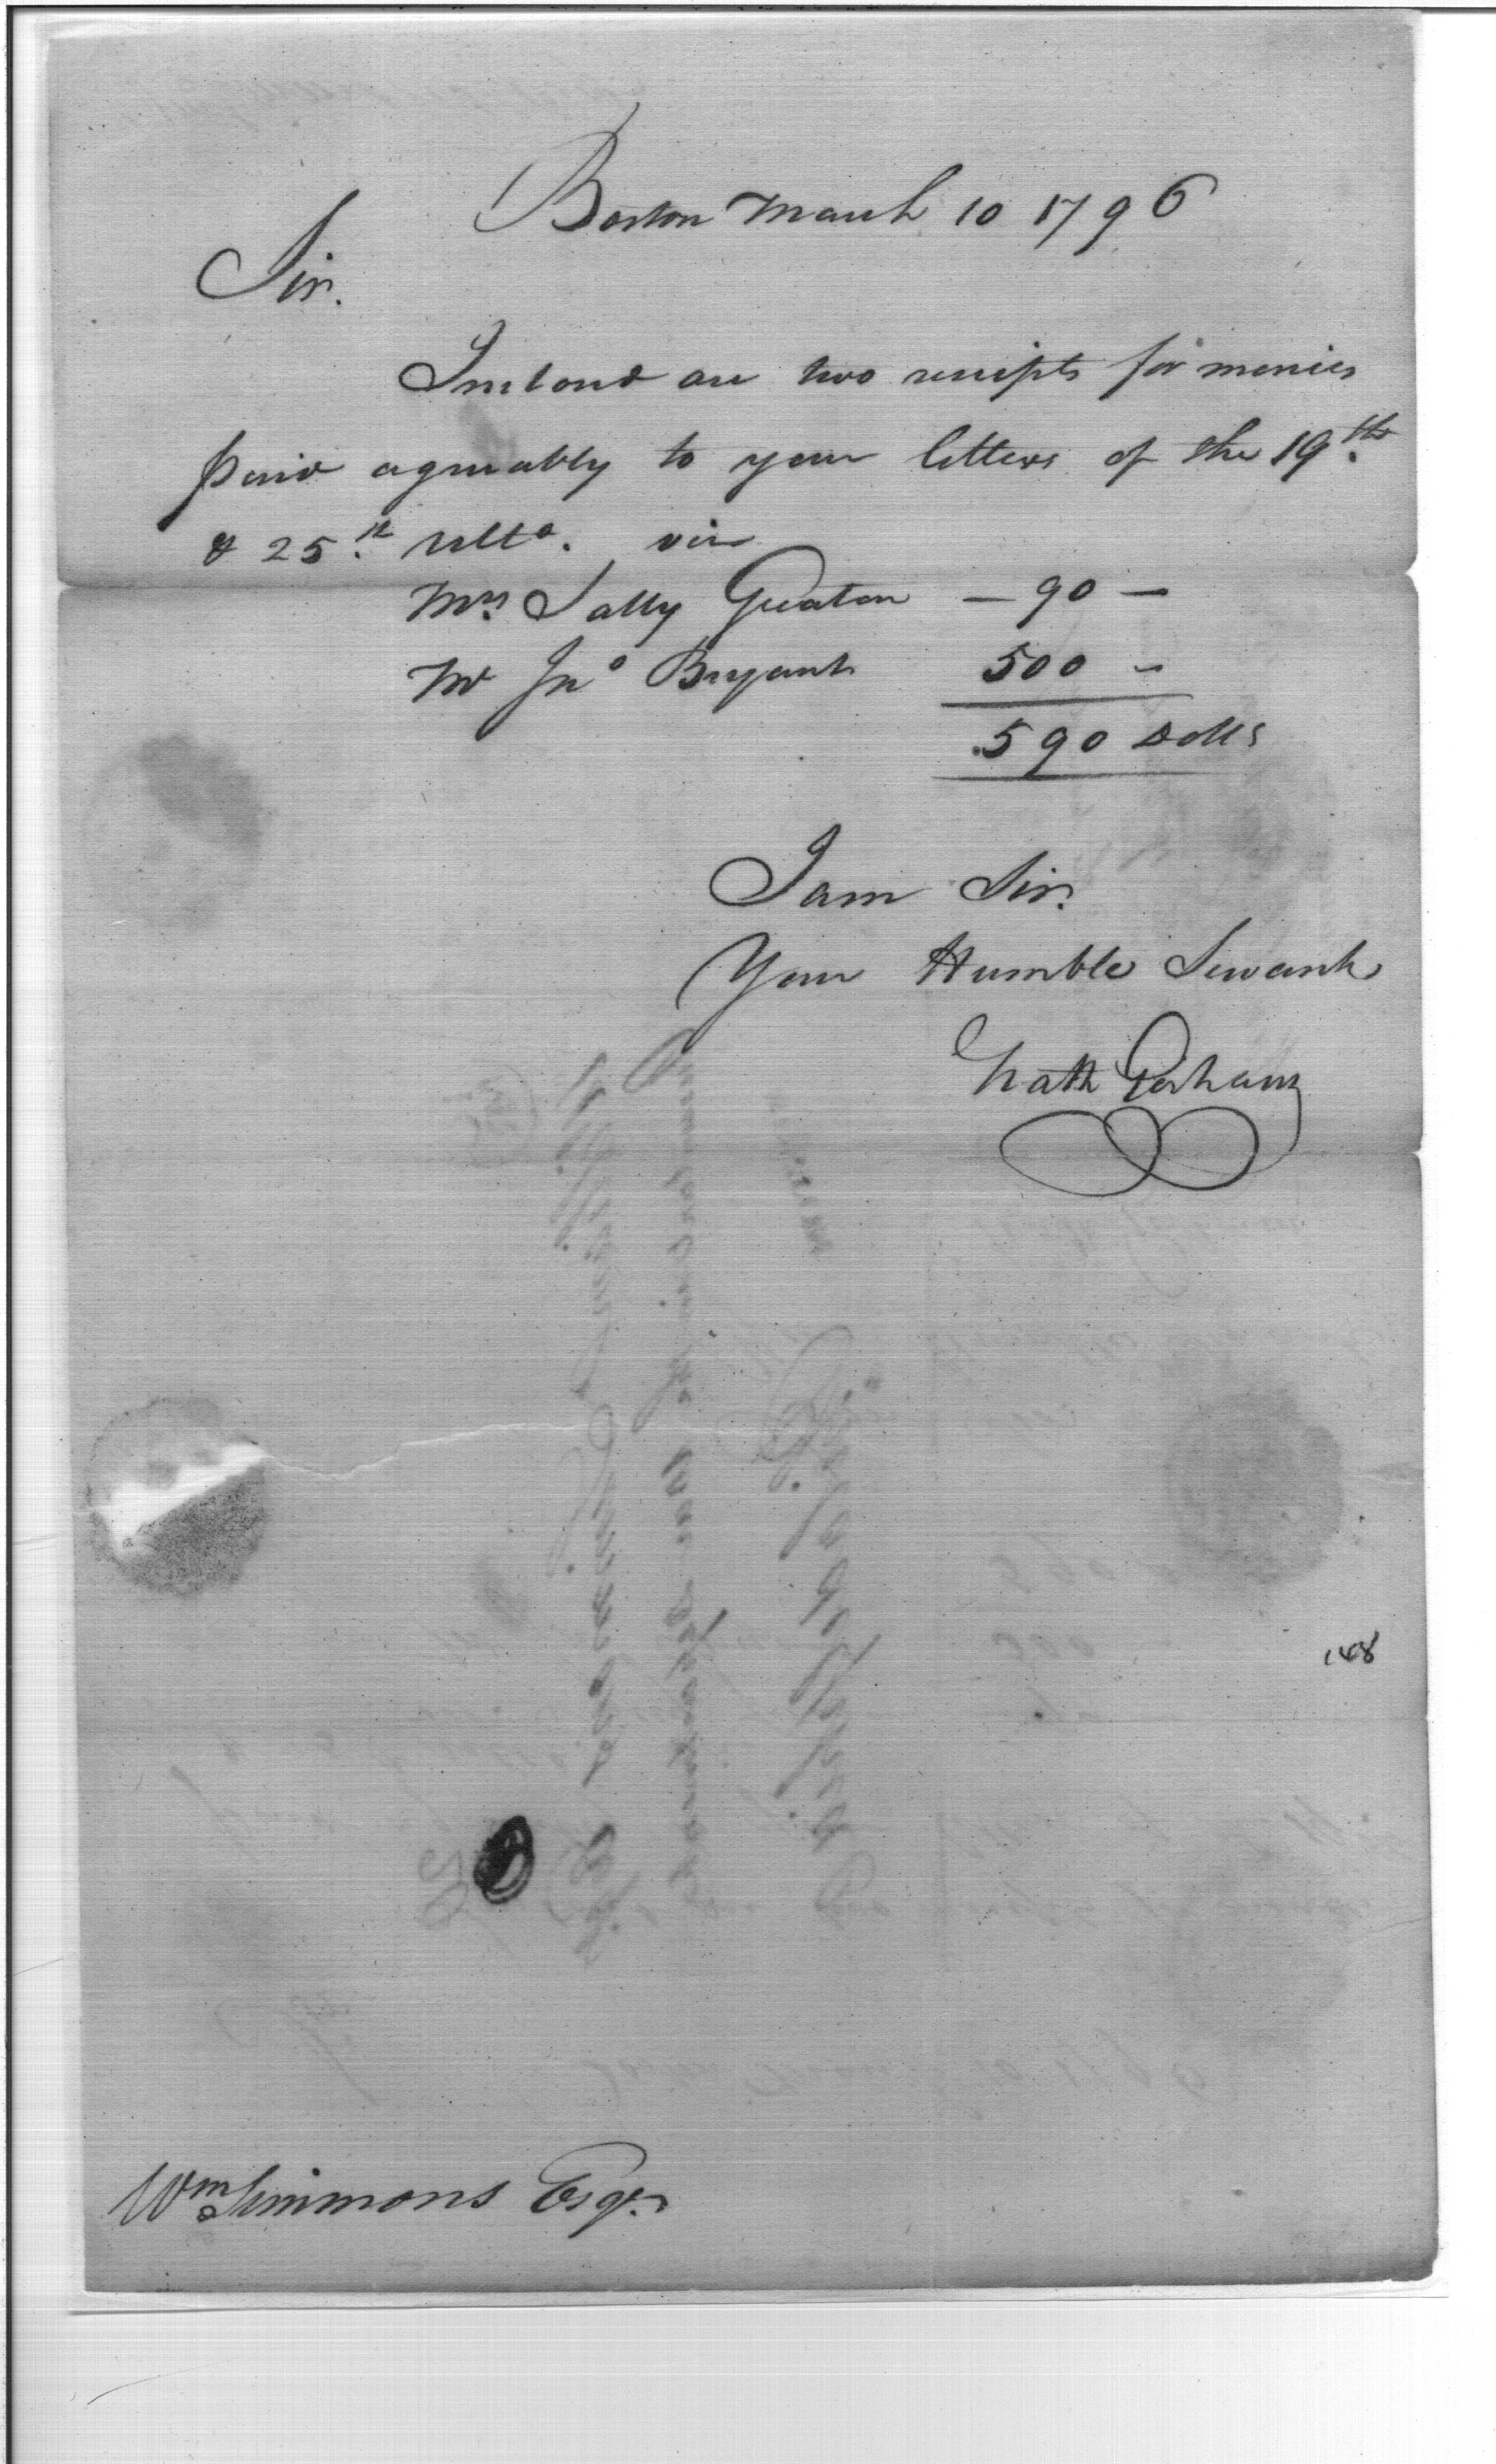 Boston March 10 1796
Sir.
Inclosd are two receipts for monies
paid agreeably to your letters of the 19th.
& 25th. ulto. viz
Mrs. Sally Greaton — 90 —
Mr Jno Bryant 500 –
590 Dolls
I am Sir.
Your Humble Servant
Nath Gorham
148
Wm Simmons Esqr.